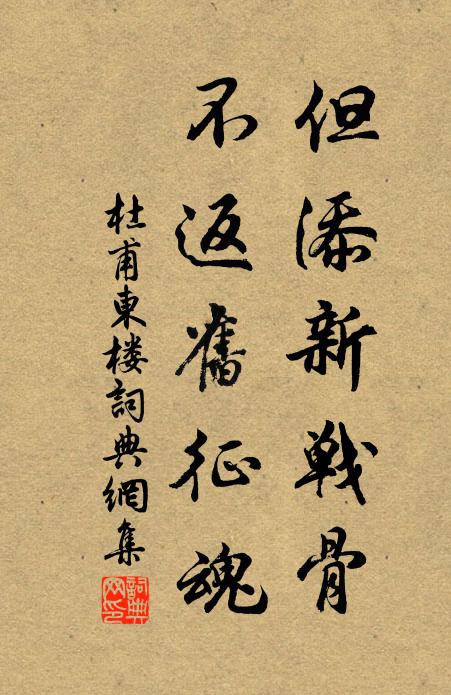 但添新戦骨
不返舊征魂
杜甫東楼詞典網集
詞典網印